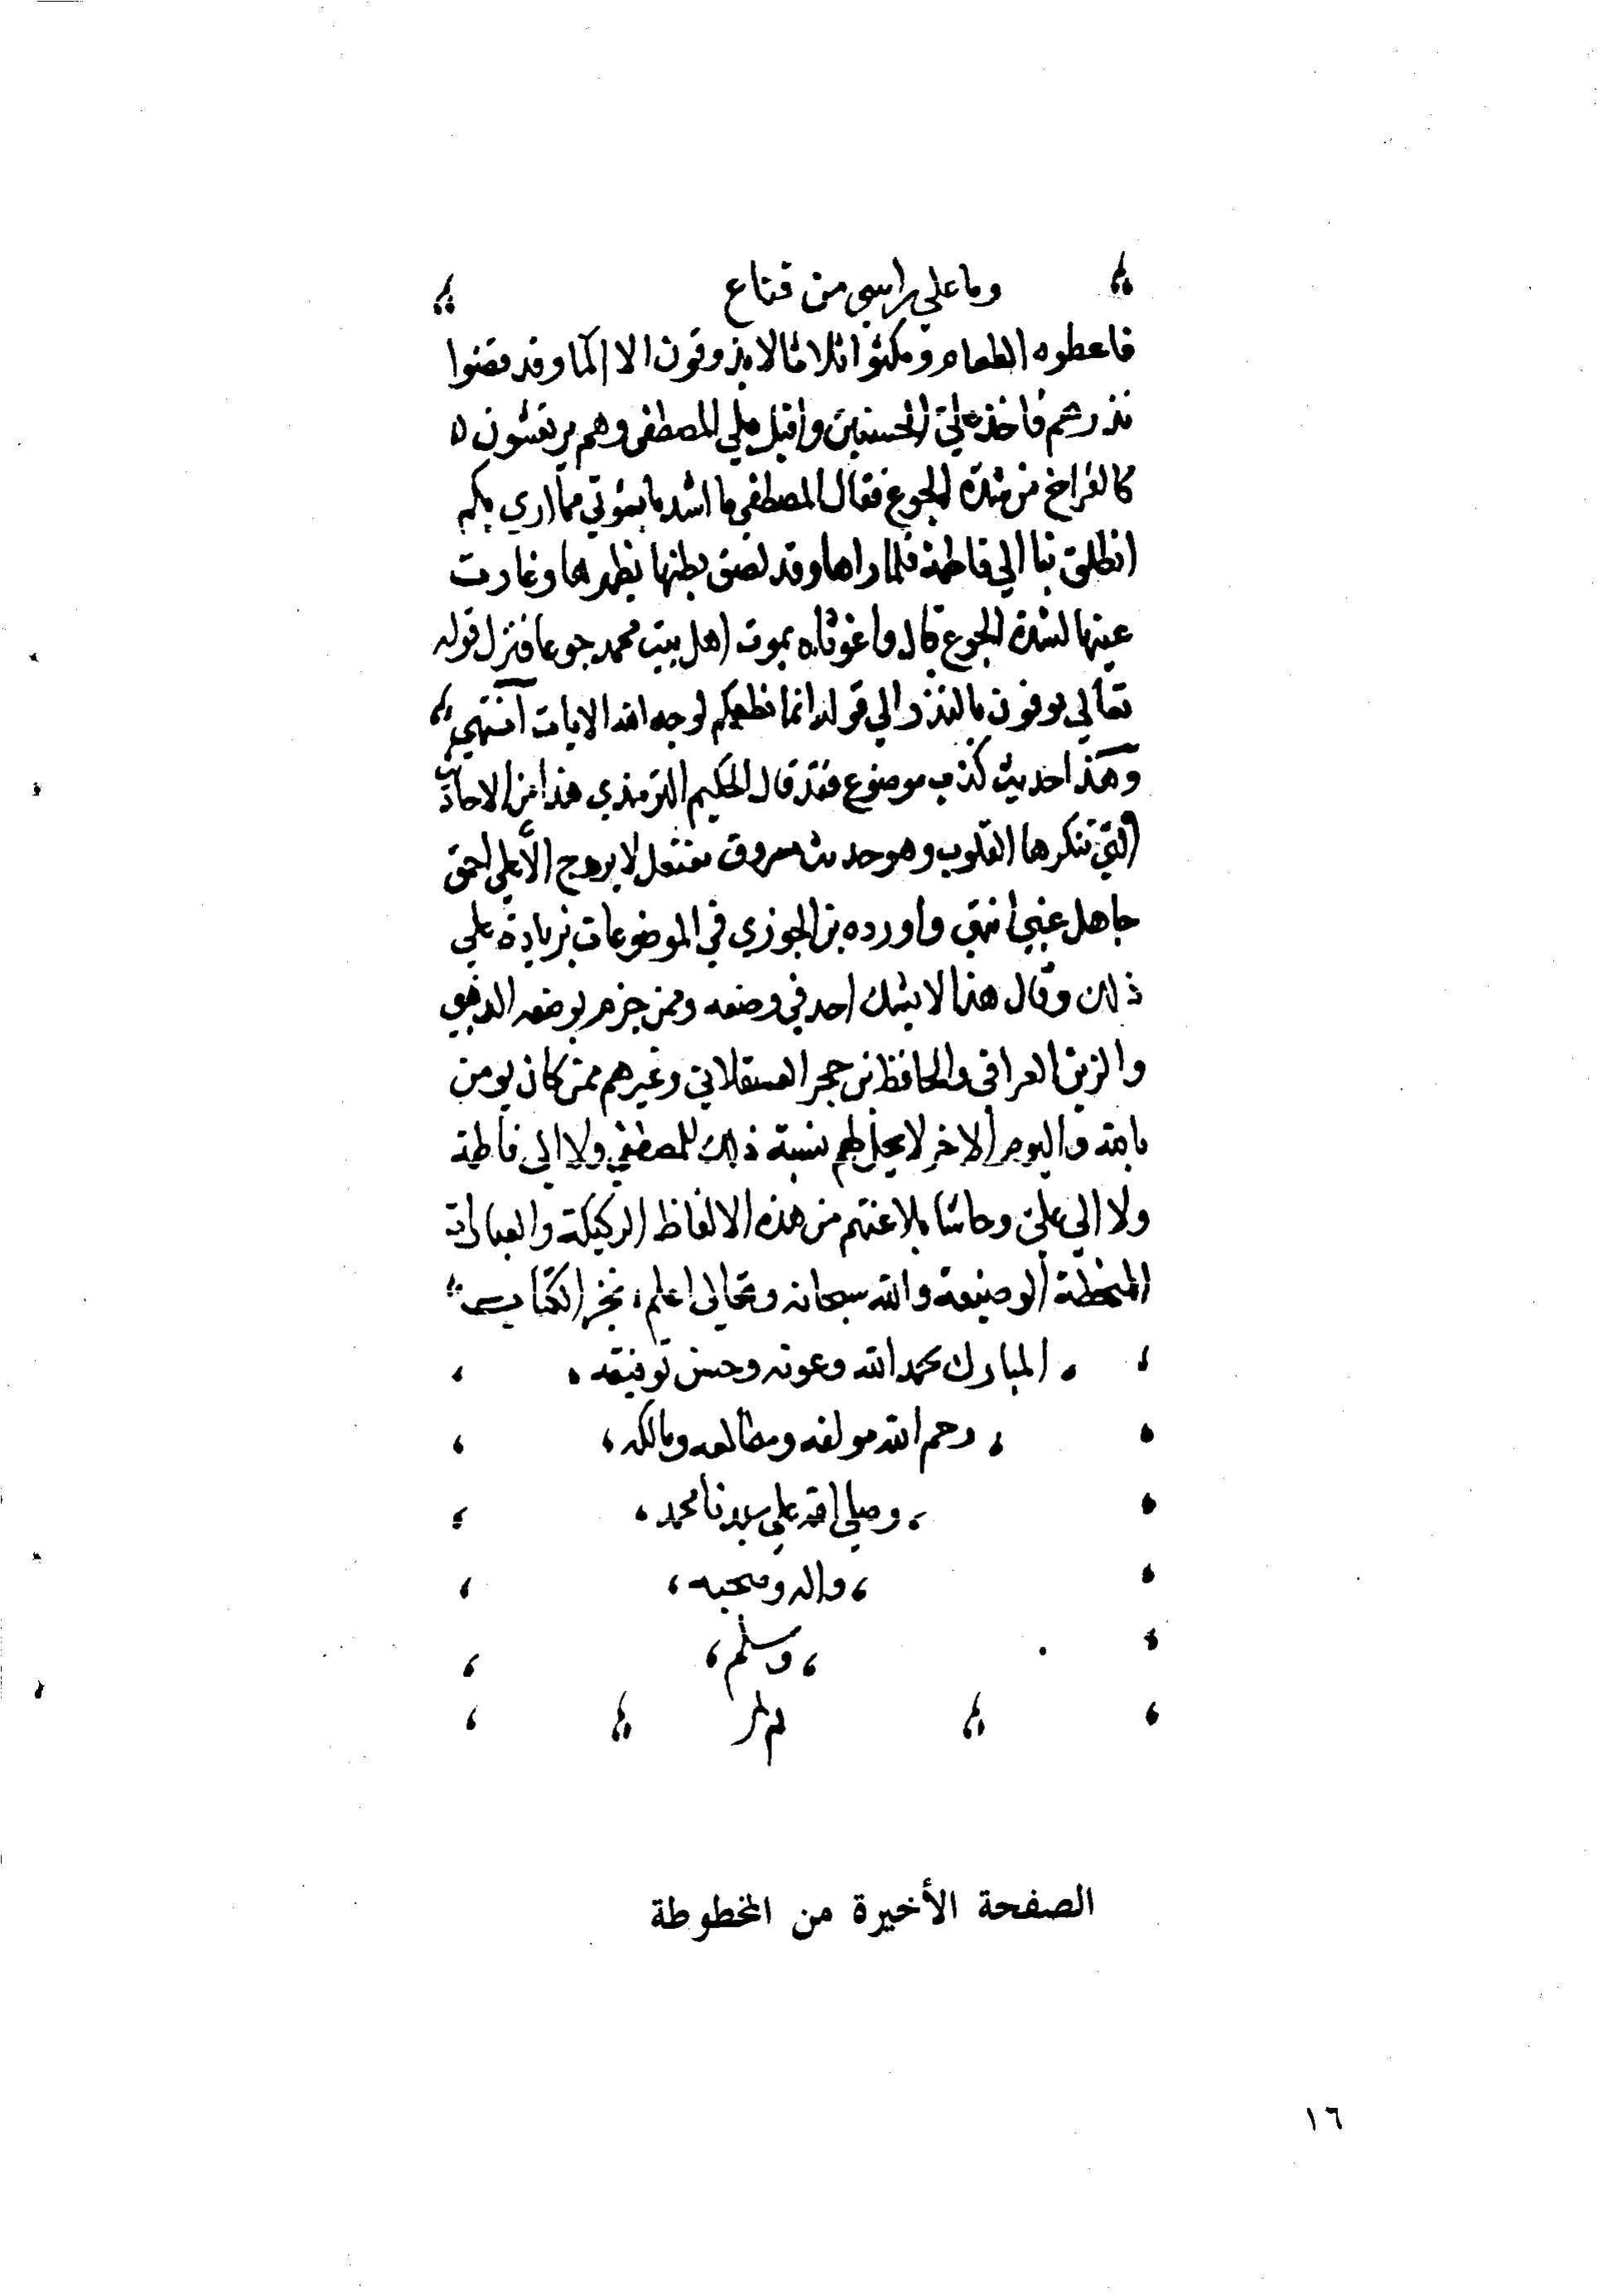 وما علي راسي من قناع
فاعطوه الطعام ومكثوا ثلاثا لا يذوقون الا الما وقد قضوا
نذرهم فاخذ علي الحسنين واقبل علي المصطفي وهم يرتعشون
كالفراخ من شدة الجوع فقال المصطفي ما اشد ما يسؤني مما اري بكم
انطلق بنا الي فاطمة فلما راها وقد لصق بطنها بظهرها وغارت
عينها لشدة الجوع قال واغوثاه يموت اهل بيت محمد جوعا فنزل قوله
تعالي يوفون بالنذر الي قوله انما نطعمكم لوجه الله الايات انتهي
وهذا حديث كذب موضوع فقد قال الحكيم الترمذي هذا من الاحاديث
التي تنكرها القلوب وهو حديث مزوق مفتعل لا يروج الا علي احمق
جاهل غبي انتهي واورده بن الجوزي في الموضوعات بزيادة علي
ذلك وقال هذا لا يشك احد في وضعه وممن جزم بوضعه الذهبي
والزين العراقي والحافظ بن حجر العسقلاني وغيرهم ممن كان يومن
بالله واليوم الاخر لا يحل لهم نسبة ذلك للمصطفي ولا الي فاطمة
ولا الي علي وحاشا بلاغتهم من هذه الالفاظ الركيكة والعبارات
المنحطة الوضيعة والله سبحانه وتعالي اعلم، نجز الكتاب
المبارك بحمد الله وعونه وحسن توفيقه،
رحم الله مولفه ومطالعه ومالكه،
وصلي الله علي سيدنا محمد،
، واله وصحبه،
، وسلم،
الصفحة الأخيرة من المخطوطة
١٦